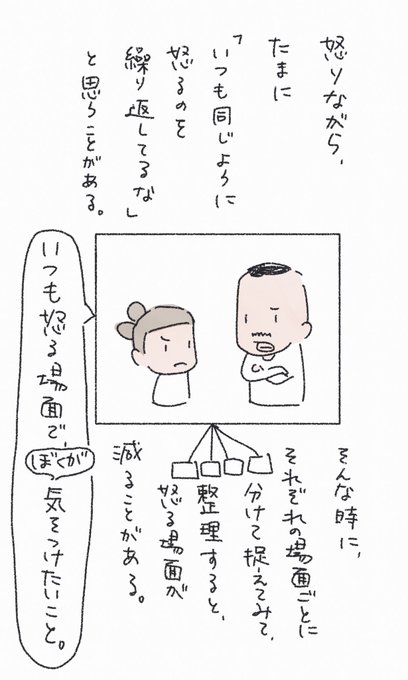 怒りながら、
たまに
「いつも同じように
怒るのを
繰り返してるな」
と思うことがある。
いつも怒る場面で、
ぼくが
気をつけたいこと。
そんな時に、
それぞれの場面ごとに
分けて捉えてみて、
整理すると、
怒る場面が
減ることがある。